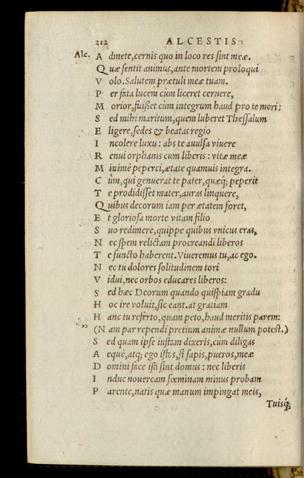 212 ALCESTIS
Alc. A dmete, cernis quo in loco res sint meæ.
Q uæ sentit animus, ante mortem proloqui
V olo. Salutem prætuli meæ tuam.
P er fata lucem cùm liceret cernere,
M orior, fuisset cùm integrum haud pro te mori:
S ed mihi maritum, quem luberet Thessalum
E ligere, sedes & beatas regio
I ncolere luxu: abs te auulsa viuere
R enui orphanis cum liberis: vitæ meæ
M inimè peperci, ætate quamuis integra.
C ùm, qui genuerat te pater, quæq; peperit
T e prodidisset mater, auras linquere,
Q uibus decorum iam per ætatem foret,
E t gloriosa morte vitam filio
S uo redimere, quippe quibus vnicus eras,
N ec spem relictam procreandi liberos
T e functo haberent. Viueremus tu, ac ego.
N ec tu dolores solitudinem tori
V idui, nec orbos educares liberos:
S ed hæc Deorum quando quispiam gradu
H oc ire voluit, sic eant. at gratiam
H anc tu referto, quam peto, haud meritis parem:
,, (N am par rependi pretium animæ nullum potest.)
S ed quam ipse iustam dixeris, cùm diligas
A equè, atq; ego istos, si sapis, pueros, meæ
D omini face isti sint domus: nec liberis
I nduc nouercam fœminam minus probam
P arente, natis quæ manum impingat meis,
Tuisq́;